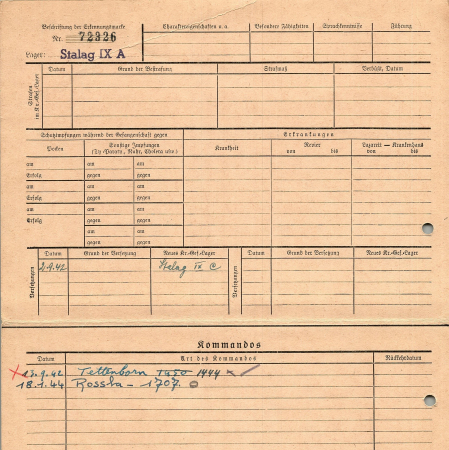 Beschriftung der Erkennungsmarke
Nr. 72326
Lager: Stalag IX A
Charaktereigenschaften u. a.
Besondere Fähigkeiten
Sprachkenntnisse
Führung
Strafen im Kr.-Gef.-Lager
Datum
Grund der Bestrafung
Strafmaß
Verbüßt, Datum
Schutzimpfungen während der Gefangenschaft gegen
Erkrankungen
Pocken
Sonstige Impfungen
(Ty.-Paraty., Ruhr, Cholera usw.)
Krankheit
Revier
von bis
Lazarett — Krankenhaus
von bis
am am am
Erfolg gegen gegen
am am am
Erfolg gegen gegen
am am am
Erfolg gegen gegen
am am
gegen gegen
Versetzungen
Datum
Grund der Versetzung
Neues Kr.-Gef.-Lager
Versetzungen
Datum
Grund der Versetzung
Neues Kr.-Gef.-Lager
2.9.42 Stalag IX C
Kommandos
Datum
Art des Kommandos
Rückkehrdatum
Tettenborn 1444
18.1.44 Rossla - 1707